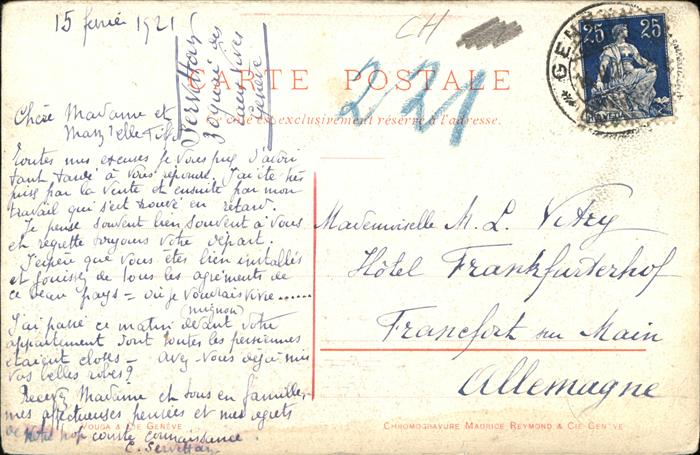 15 février 1921
CH
25 25
GEN
CARTE POSTALE
221
Servettaz
2 quai des
Eaux Vives
Genève
Ce côté est exclusivement réservé à l'adresse.
Chère Madame et
Mad'elle
Toutes mes excuses je vous prie d'avoir
tant tardé à vous répondre. J'ai été très
prise par la vente et ensuite par mon
travail qui s'est trouvé en retard.
Je pense souvent bien souvent à vous
et regrette toujours votre départ.
J'espère que vous êtes bien installés
et jouissez de tous les agréments de
ce beau pays = où je voudrais vivre......
J'ai passé ce matin devant votre
mignon
appartement dont toutes les persiennes
étaient closes - avez-vous déjà mis
vos belles robes?
Recevez Madame et tous en famille,
mes affectueuses pensées et mes regrets
de notre trop courte connaissance.
C. Servettaz
Mademoiselle M. L. Vitry
Hôtel Frankfurterhof
Francfort sur Main
Allemagne
VOUGA & CIE GENÈVE
CHROMOGRAVURE MAURICE REYMOND & CIE GENÈVE